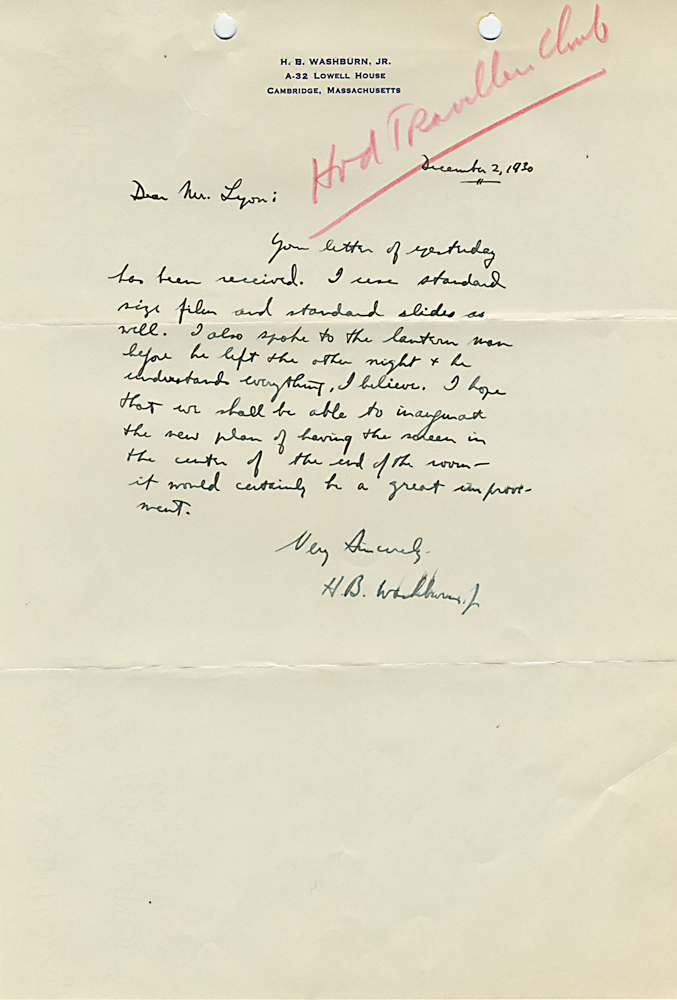 H. B. WASHBURN, JR.
A-32 LOWELL HOUSE
CAMBRIDGE, MASSACHUSETTS
Hvd Travellers Club
December 2, 1930
Dear Mr. Lyon:
Your letter of yesterday
has been received. I use standard
size film and standard slides as
well. I also spoke to the lantern man
before he left the other night & he
understands everything, I believe. I hope
that we shall be able to inaugurate
the new plan of having the screen in
the center of the end of the room—
it would certainly be a great improve-
ment.
Very Sincerely.
H.B. Washburn, Jr